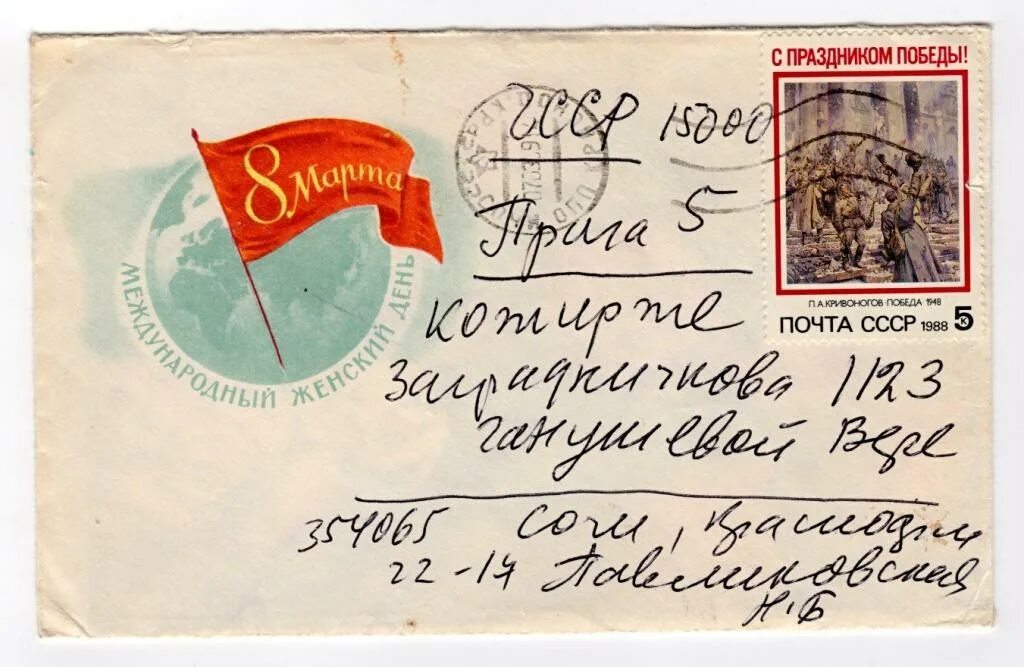 С ПРАЗДНИКОМ ПОБЕДЫ!
П.А.КРИВОНОГОВ·ПОБЕДА·1948
ПОЧТА СССР 1988 5 К
8 Марта
МЕЖДУНАРОДНЫЙ ЖЕНСКИЙ ДЕНЬ
ЧССР 15000
Прага 5
Кожирже
Заградничкова 1123
Ганушевой Вере
354065 Сочи, Краснодам
22-17 Павликовская
Н.Б